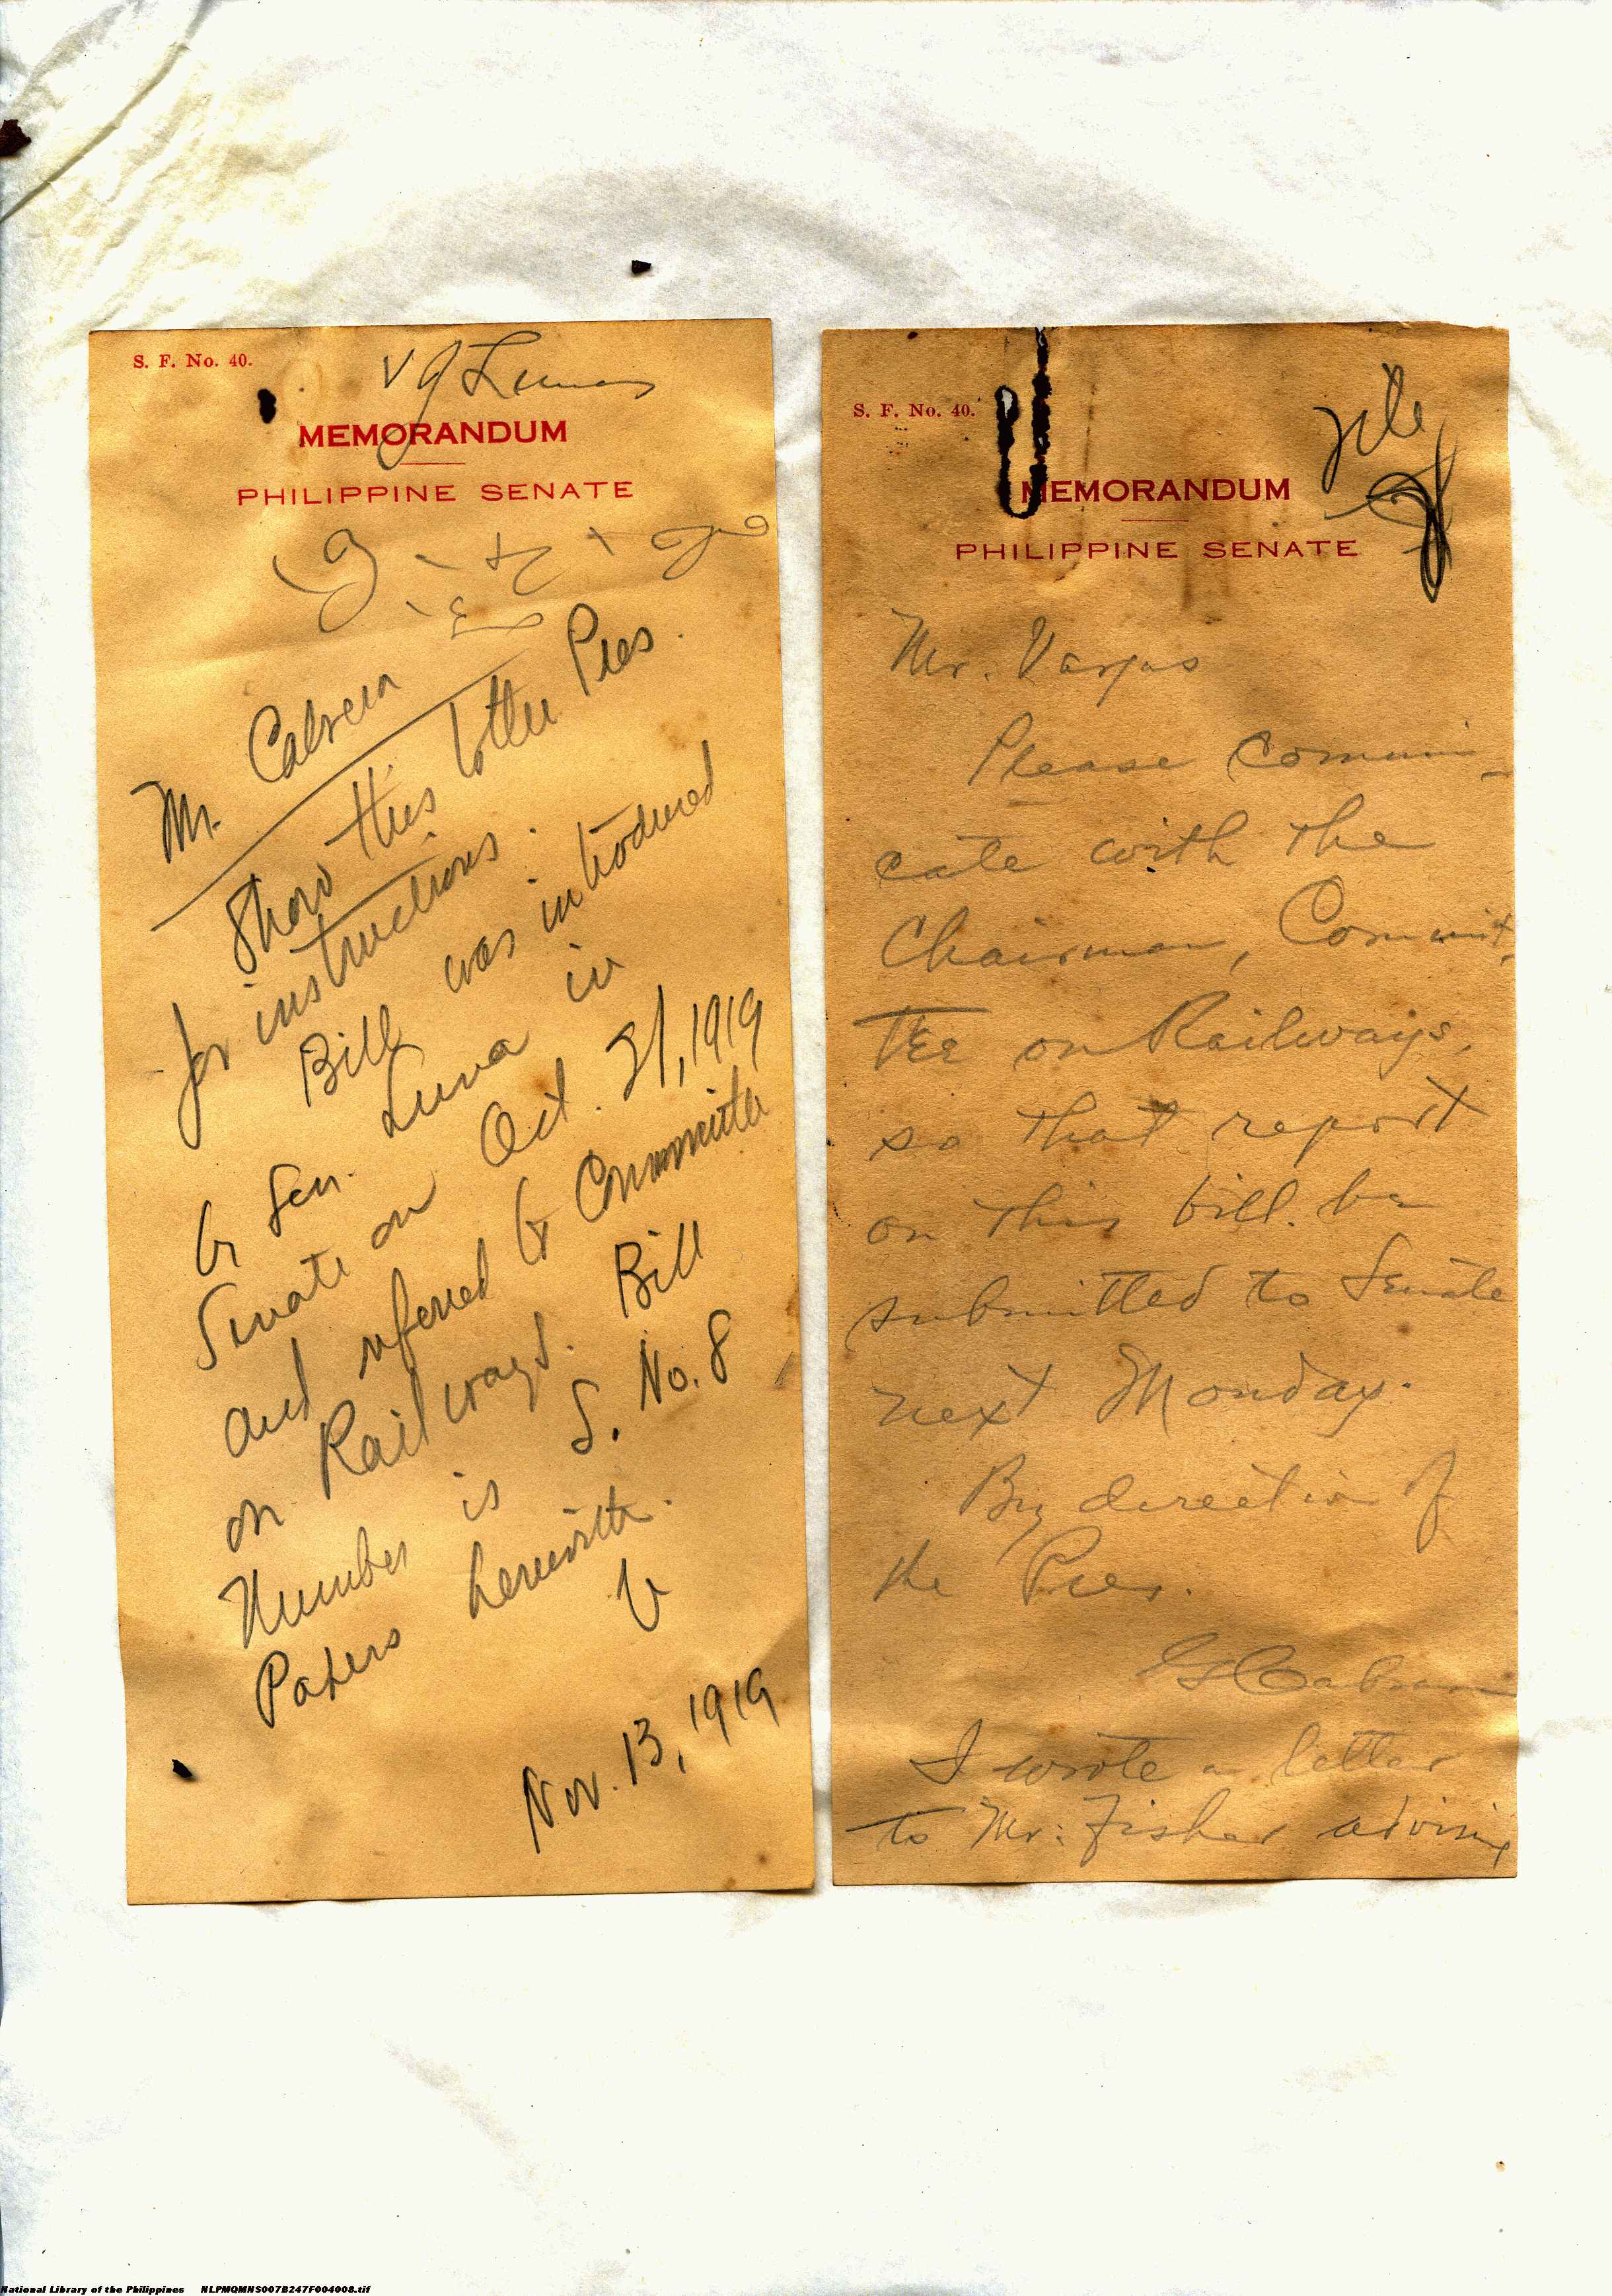 S. F. No. 40.
MEMORANDUM
PHILIPPINE SENATE
Mr. Cabrera
Show this to the Pres.
for instructions.
Bill was introduced
by Sen. Luna in
Senate on Oct. 21, 1919
and referred to Committee
on Railways. Bill
Number is S. No. 8
Papers herewith.
V
Nov. 13, 1919
S. F. No. 40.
file
MEMORANDUM
PHILIPPINE SENATE
Mr. Vargas
Please communi-
cate with the
Chairman, Commit-
tee on Railways,
so that report
on this bill be
submitted to Senate
next Monday.
By direction of
the Pres.
Cabrera
I wrote a letter
to Mr. Fisher advising
National Library of the Philippines NLPMQMNS007B247F004008.tif